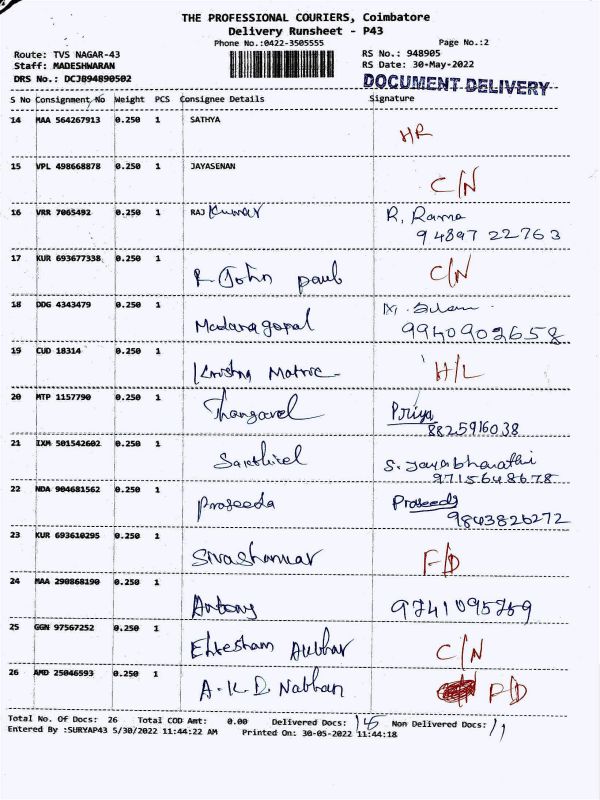 THE PROFESSIONAL COURIERS, Coimbatore
Delivery Runsheet - P43
Phone No.:0422-3505555
Page No.:2
Route: TVS NAGAR-43
RS No.: 948905
Staff: MADESHWARAN
RS Date: 30-May-2022
DRS No.: DCJ894890502
DOCUMENT DELIVERY
S No Consignment No Weight PCS Consignee Details Signature
14 MAA 564267913 0.250 1 SATHYA
HR
15 VPL 498668878 0.250 1 JAYASENAN
C/N
16 VRR 7065492 0.250 1 RAJ Kumar R. Rama
94897 22763
17 KUR 693677338 0.250 1
R John paul C/N
18 DDG 4343479 0.250 1
Madanagopal 9940902658
19 CUD 18314 0.250 1
Krishna Matric H/L
20 MTP 1157790 0.250 1
Thangavel Priya
8825916038
21 IXM 501542602 0.250 1
Sakthivel S. Jayabharathi
9715648678
22 NDA 904681562 0.250 1
Praseeda Praseeda
9843826272
23 KUR 693610295 0.250 1
Sivashankar F/D
24 MAA 290868190 0.250 1
Antony 9741095759
25 GGN 97567252 0.250 1
Ehtesham Aubhar C/N
26 AMD 25046593 0.250 1
A.K.D. Nabhan P/D
Total No. Of Docs: 26 Total COD Amt: 0.00 Delivered Docs: Non Delivered Docs:
Entered By :SURYAP43 5/30/2022 11:44:22 AM Printed On: 30-05-2022 11:44:18